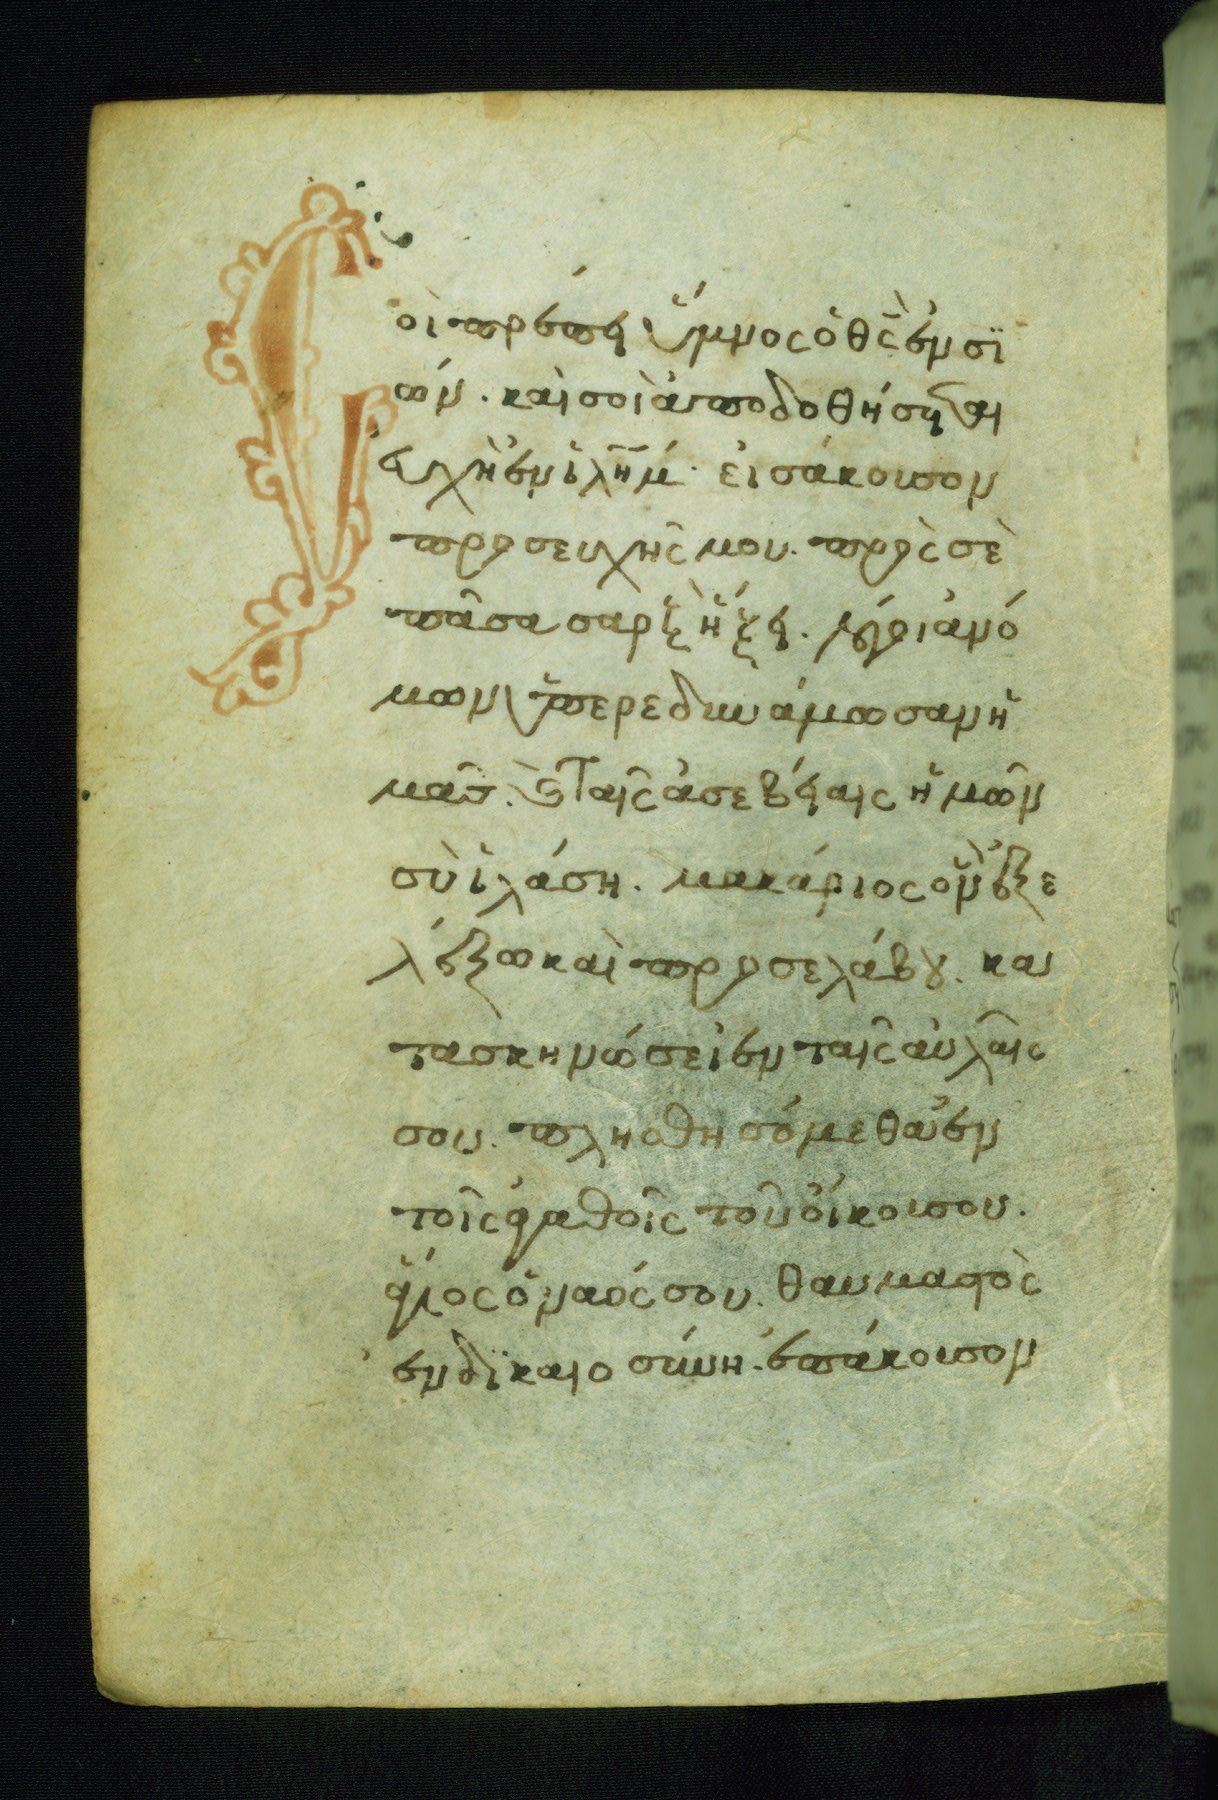 Σοὶ πρέπει ὕμνος ὁ θς ἐν σϊ
ών. καὶ σοὶ ἀποδοθήσεται
εὐχὴ ἐν ἱλημ. εἰσάκουσον
προσευχῆς μου. πρὸς σὲ
πᾶσα σαρξ ἥξει. λόγοι ἀνό
μων ὑπερεδυνάμωσαν ἡ
μᾶσ. καὶ ταῖς ἀσεβείαις ἡμῶν
σὺ ἱλάση. μακάριος ὃν ἐξε
λέξω καὶ προσελάβου. κα
τασκηνώσει ἐν ταῖς αὐλαῖς
σου. πλησθησόμεθα ἐν
τοῖς ἀγαθοῖς τοῦ οἴκου σου.
ἅγιος ὁ ναός σου. θαυμαστὸς
ἐν δϊκαιοσύνη. ἐπάκουσον